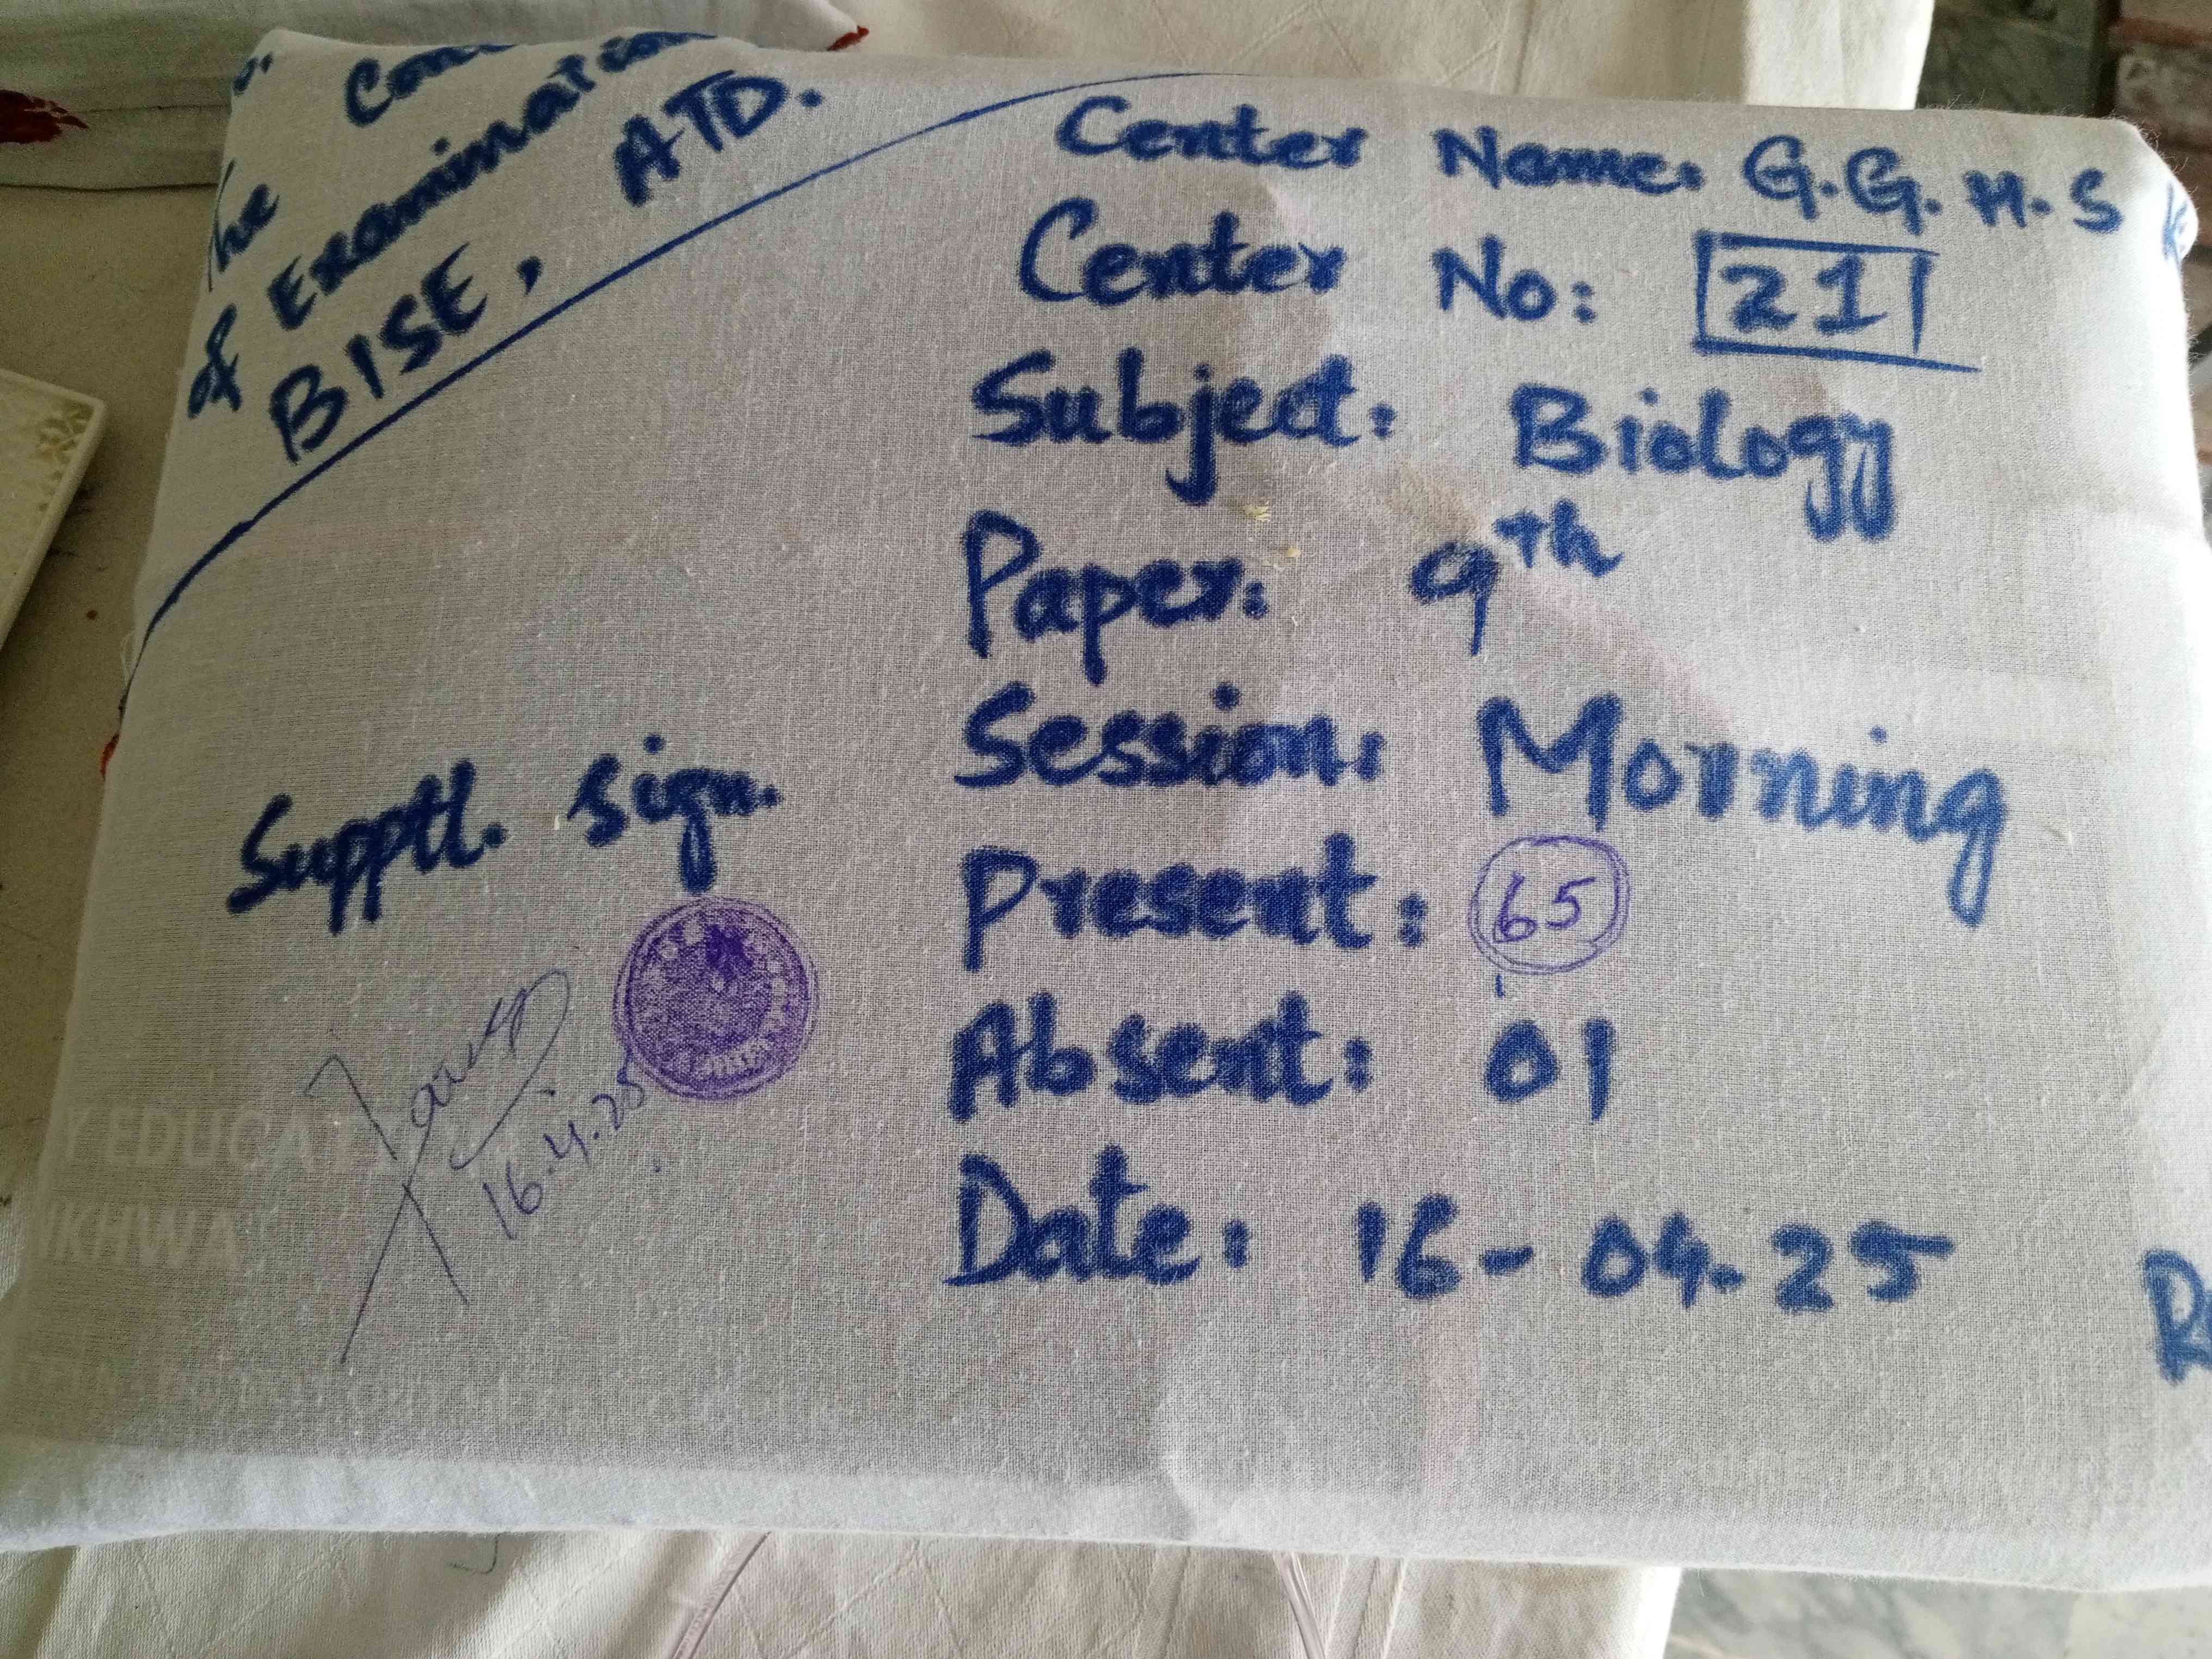 The Con
of Examination
BISE, ATD.
Center Name: G.G.H.S
Center No: 21
Subject: Biology
Paper: 9th
Session: Morning
Present: 65
Absent: 01
Date: 16-04-25
Supptl. Sign.
16.4.25
Y EDUCAT
NKHWA